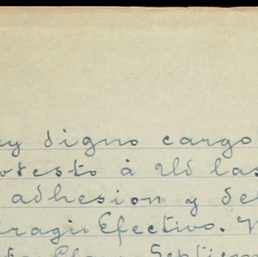 y digno cargo
otesto á Ud las
adhesion y de
ragio Efectivo.
Septiem